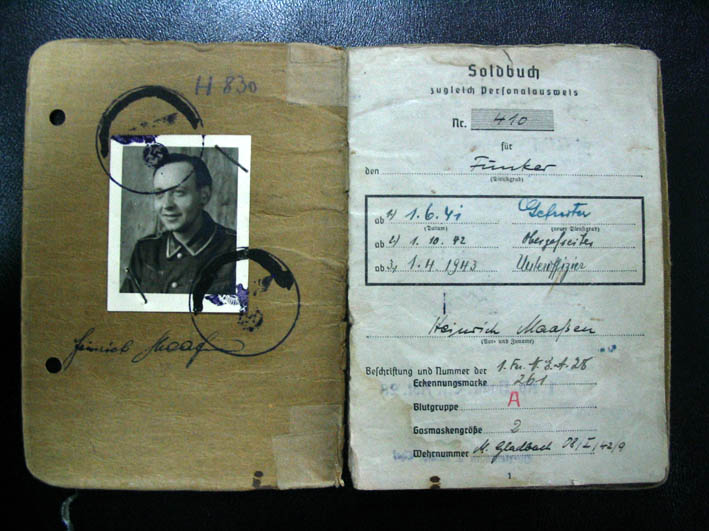 H 830
Heinrich Maaß
Soldbuch
zugleich Personalausweis
Nr. 410
für
den Funker
(Dienstgrad)
ab 1) 1.6.41 Gefreiter
(Datum) (neuer Dienstgrad)
ab 2) 1.10.42 Obergefreiter
ab 3) 1.4.1943 Unteroffizier
Heinrich Maaßen
(Vor- und Zuname)
Beschriftung und Nummer der 1. Fu. N. E. A. 26
Erkennungsmarke 261
Blutgruppe A
Gasmaskengröße 2
Wehrnummer M. Gladbach 08/I/42/9
1